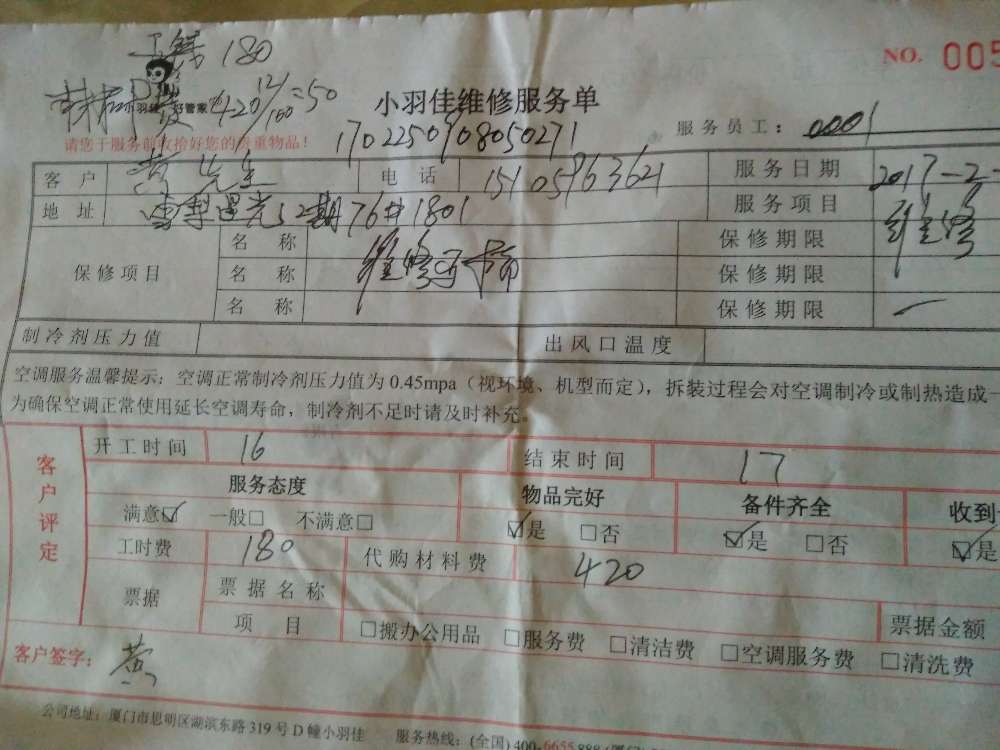 工钱180
NO. 005
小羽佳 好管家 420 12/100=50
小羽佳维修服务单
请您于服务前收拾好您的贵重物品！
1702250908050271
服务员工： 0001
客户 黄先生 电话 15105963621 服务日期 2017-2-
地址 2期76#1801 服务项目 维修
保修项目 名称 维修 保修期限
名称 保修期限
名称 保修期限 一
制冷剂压力值 出风口温度
空调服务温馨提示：空调正常制冷剂压力值为0.45mpa（视环境、机型而定），拆装过程会对空调制冷或制热造成一
为确保空调正常使用延长空调寿命，制冷剂不足时请及时补充。
客户评定
开工时间 16 结束时间 17
服务态度 物品完好 备件齐全 收到
满意☑ 一般□ 不满意□ ☑是 □否 ☑是 □否 ☑是
工时费 180 代购材料费 420
票据 票据名称
项目 □搬办公用品 □服务费 □清洁费 □空调服务费 □清洗费 票据金额
客户签字： 黄
公司地址：厦门市思明区湖滨东路319号D幢小羽佳 服务热线：(全国)400-6655888(厦门)